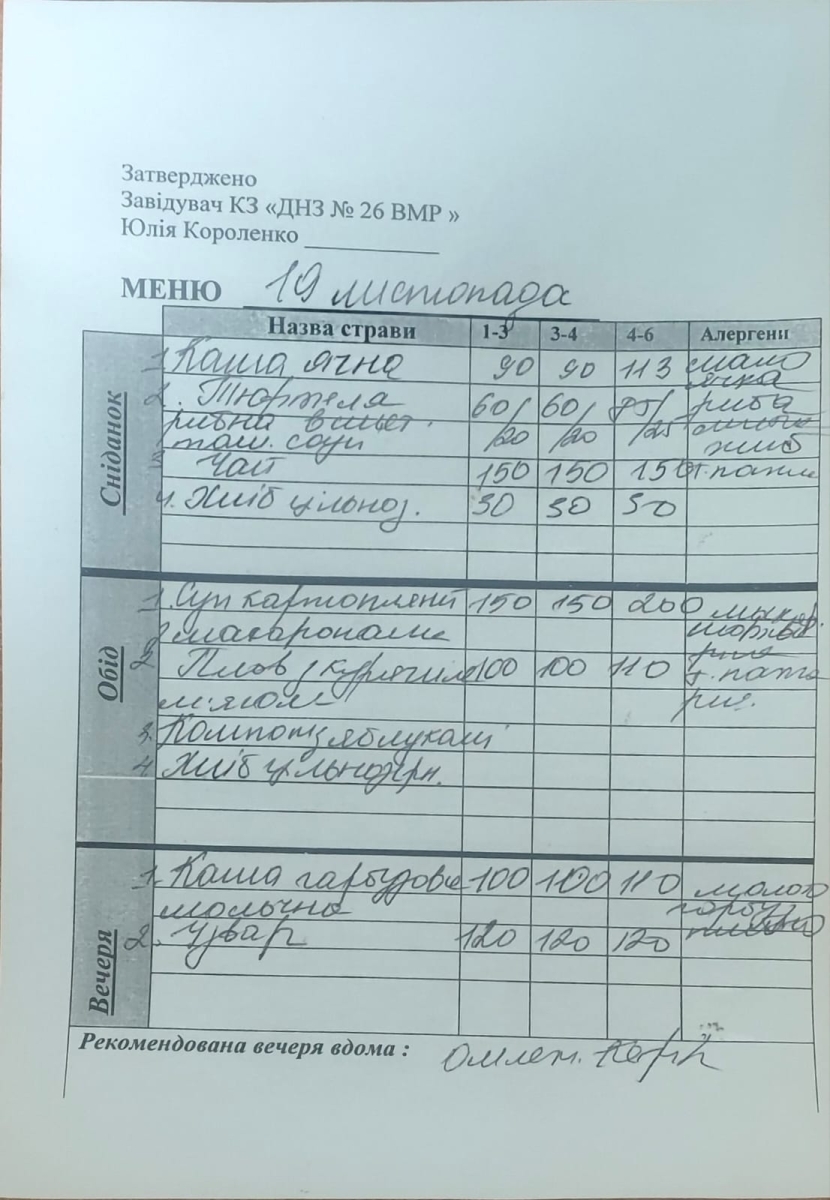 Затверджено
Завідувач КЗ «ДНЗ № 26 ВМР »
Юлія Короленко
МЕНЮ 19 листопада
Назва страви 1-3 3-4 4-6 Алергени
Сніданок
1. Каша ячна 90 90 113 масло
2. Тюфтеля 60/ 60/ 75/ риба
рибна в
том. соусі /20 /20 /25 хліб
3. Чай 150 150 150 т. паста
4. Хліб цільноз. 30 30 30
Обід
1. Суп картопляний 150 150 200
з макаронами
2. Плов з курячим 100 100 110 т. паста
м'ясом рис.
3. Компот з яблуками
4. Хліб цільнозерн.
Вечеря
1. Каша гарбузова 100 100 110 молоко
молочна гарбуз
2. Узвар 120 120 120
Рекомендована вечеря вдома : Омлет. Кефір